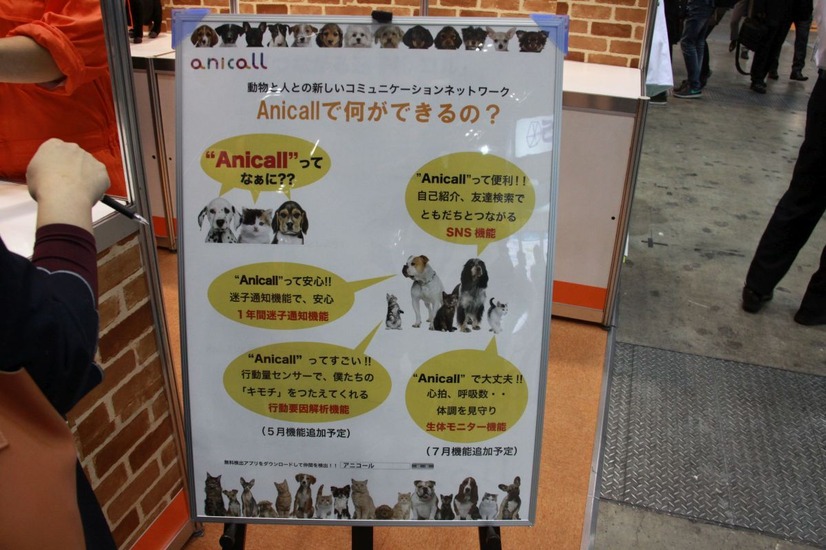 anicall
動物と人との新しいコミュニケーションネットワーク
Anicallで何ができるの？
“Anicall”って
なぁに??
“Anicall”って便利！！
自己紹介、友達検索で
ともだちとつながる
SNS 機能
“Anicall”って安心!!
迷子通知機能で、安心
1年間迷子通知機能
“Anicall” ってすごい!!
行動量センサーで、僕たちの
「キモチ」をつたえてくれる
行動要因解析機能
（５月機能追加予定）
“Anicall” で大丈夫!!
心拍、呼吸数・・
体調を見守り
生体モニター機能
（７月機能追加予定）
アプリをダウンロードして仲間を検出！！ アニコール